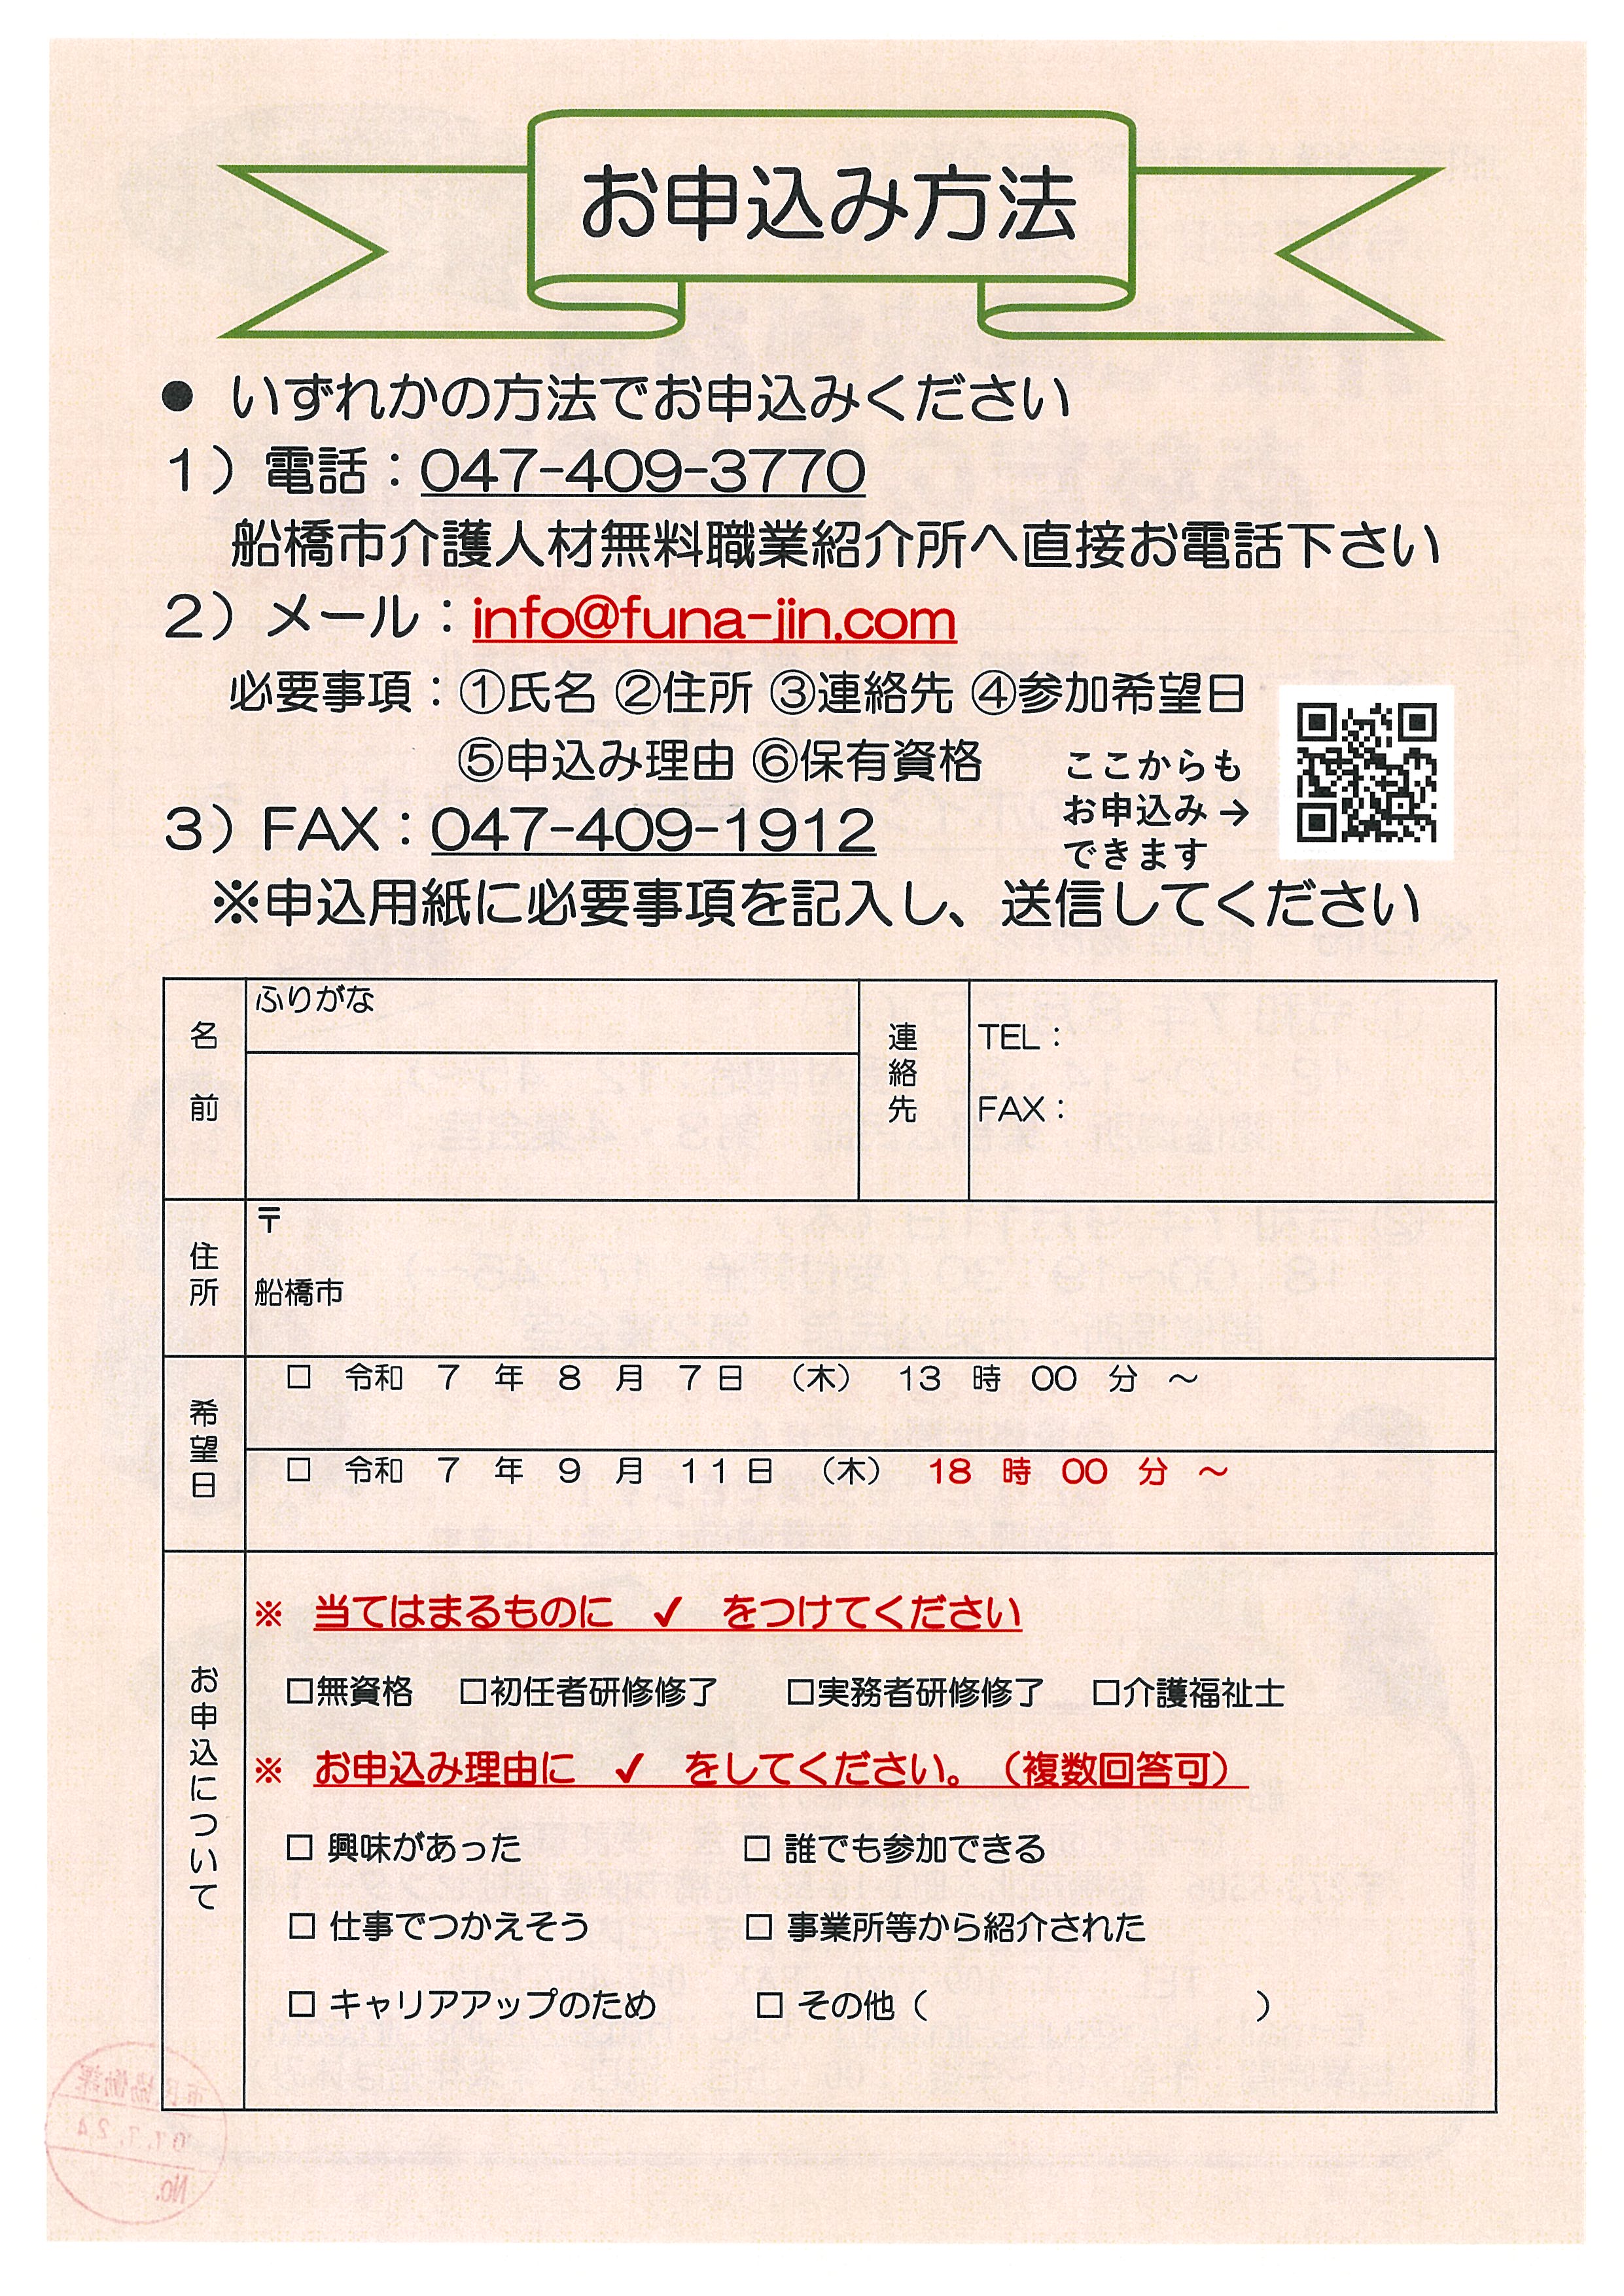 お申込み方法
● いずれかの方法でお申込みください
1）電話：047-409-3770
船橋市介護人材無料職業紹介所へ直接お電話下さい
2）メール：info@funa-jin.com
必要事項：①氏名 ②住所 ③連絡先 ④参加希望日
⑤申込み理由 ⑥保有資格
ここからも
お申込み→
できます
3）FAX：047-409-1912
※申込用紙に必要事項を記入し、送信してください
名前
ふりがな
連絡先
TEL：
FAX：
住所
〒
船橋市
希望日
□ 令和 7 年 8 月 7日 （木） 13 時 00 分 ～
□ 令和 7 年 9 月 11日 （木） 18 時 00 分 ～
お申込について
※ 当てはまるものに ✓ をつけてください
□無資格 □初任者研修修了 □実務者研修修了 □介護福祉士
※ お申込み理由に ✓ をしてください。（複数回答可）
□ 興味があった □ 誰でも参加できる
□ 仕事でつかえそう □ 事業所等から紹介された
□ キャリアアップのため □ その他（ ）
市民協働課
07.7.24
No.